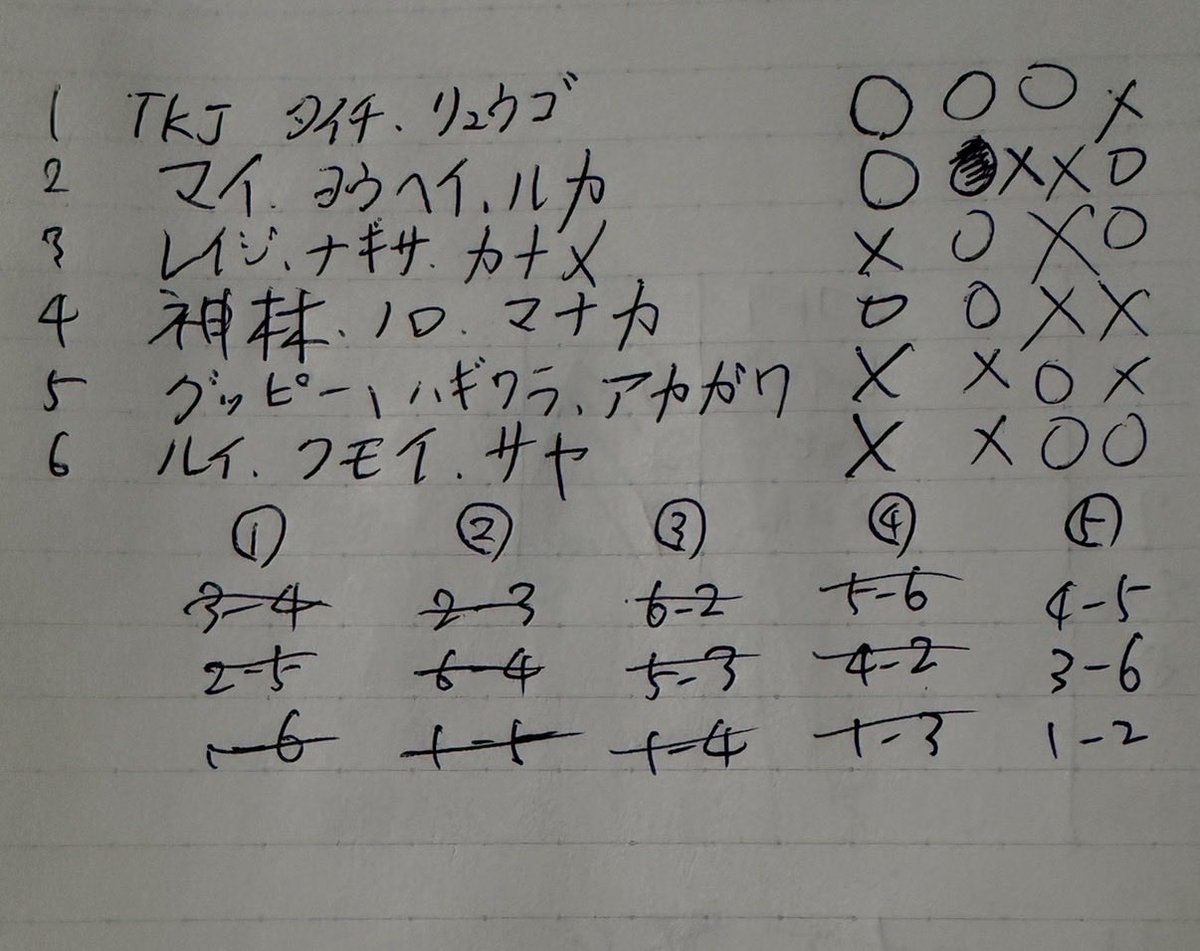 1 TKJ タイチ、リュウゴ ○ ○ ○ ×
2 マイ、ヨウヘイ、ルカ ○ × × ○
3 レイジ、ナギサ、カナメ × ○ × ○
4 神林、ノロ、マナカ ○ ○ × ×
5 グッピー、ハギワラ、アカガワ × × ○ ×
6 ルイ、クモイ、サヤ × × ○ ○
① ② ③ ④ ⑤
3-4 2-3 6-2 5-6 4-5
2-5 6-4 5-3 4-2 3-6
1-6 1-5 1-4 1-3 1-2